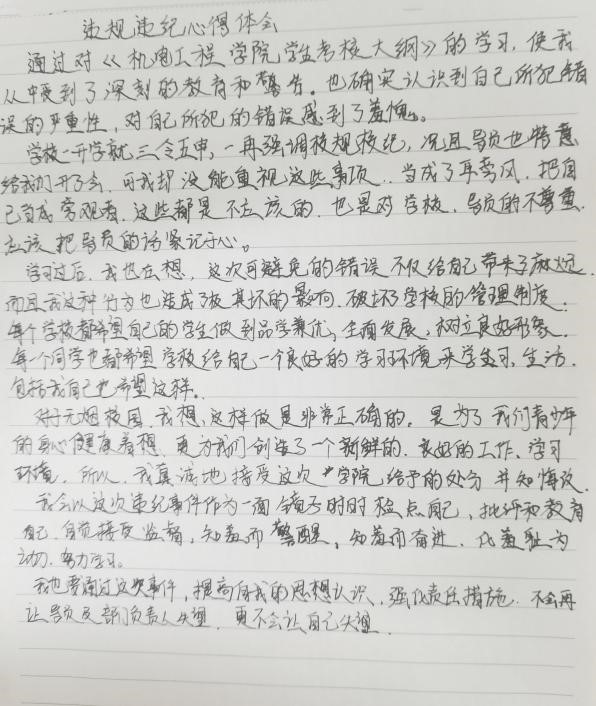 违规违纪心得体会
通过对《机电工程学院学生考核大纲》的学习，使我
从中受到了深刻的教育和警告。也确实认识到自己所犯错
误的严重性，对自己所犯的错误感到了羞愧。
学校一开学就三令五申，一再强调校规校纪，况且导员也特意
给我们开了会，可我却没能重视这些事项，当成了耳旁风，把自
己当成旁观者，这些都是不应该的，也是对学校、导员的不尊重，
应该把导员的话紧记于心。
学习过后，我也在想，这次可避免的错误不仅给自己带来了麻烦，
而且我这种行为也造成了极其坏的影响，破坏了学校的管理制度。
每个学校都希望自己的学生做到品学兼优，全面发展，树立良好形象，
每一个同学也都希望学校给自己一个良好的学习环境来学习，生活，
包括我自己也希望这样。
对于无烟校园，我想，这样做是非常正确的，是为了我们青少年
的身心健康着想，更为我们创造了一个新鲜的、良好的工作、学习
环境，所以，我真诚地接受这次学院给予的处分并知悔改。
我会以这次违纪事件作为一面镜子时时检点自己，批评和教育
自己，自觉接受监督，知羞而警醒，知羞而奋进，化羞耻为
动力，努力学习。
我也要通过这次事件，提高自我的思想认识，强化责任措施，不会再
让导员及部门负责人失望，更不会让自己失望。